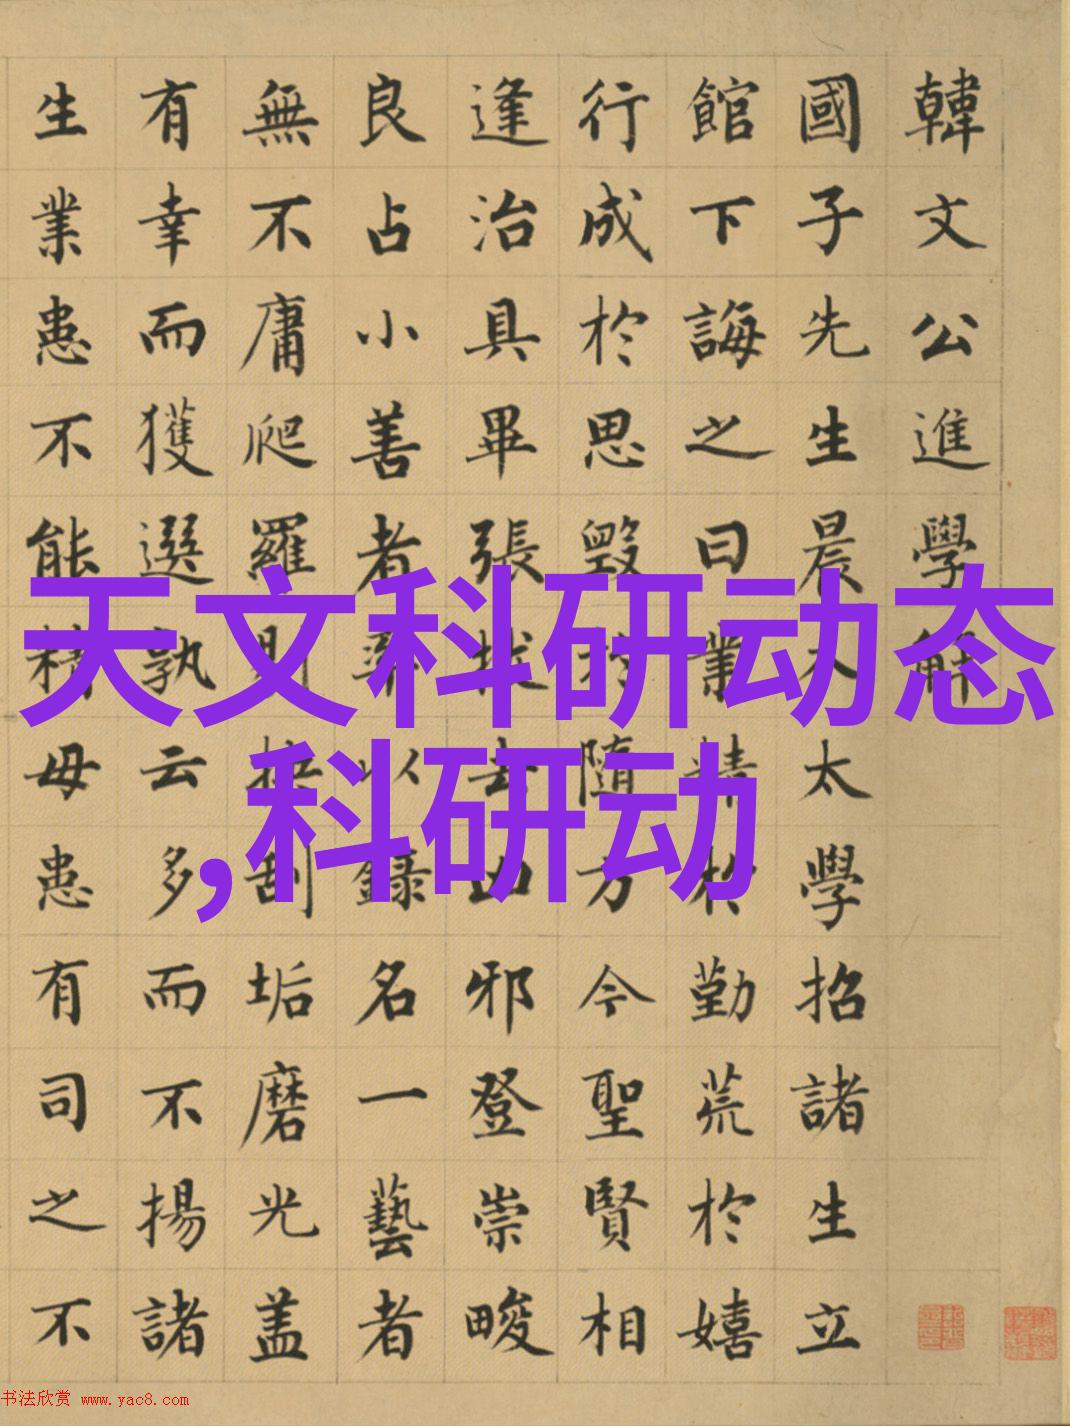 韓文公進學解
國子先生晨入太學招諸生立
館下誨之曰業精於勤荒於嬉
行成於思毀於隨方今聖賢相
逢治具畢張拔去凶邪登崇畯
良占小善者率以錄名一藝者
無不庸爬羅剔抉刮垢磨光盖
有幸而獲選孰云多而不揚諸
生業患不能精毋患有司之不
天文科研动态
,科研动
书法欣赏 www.yac8.com